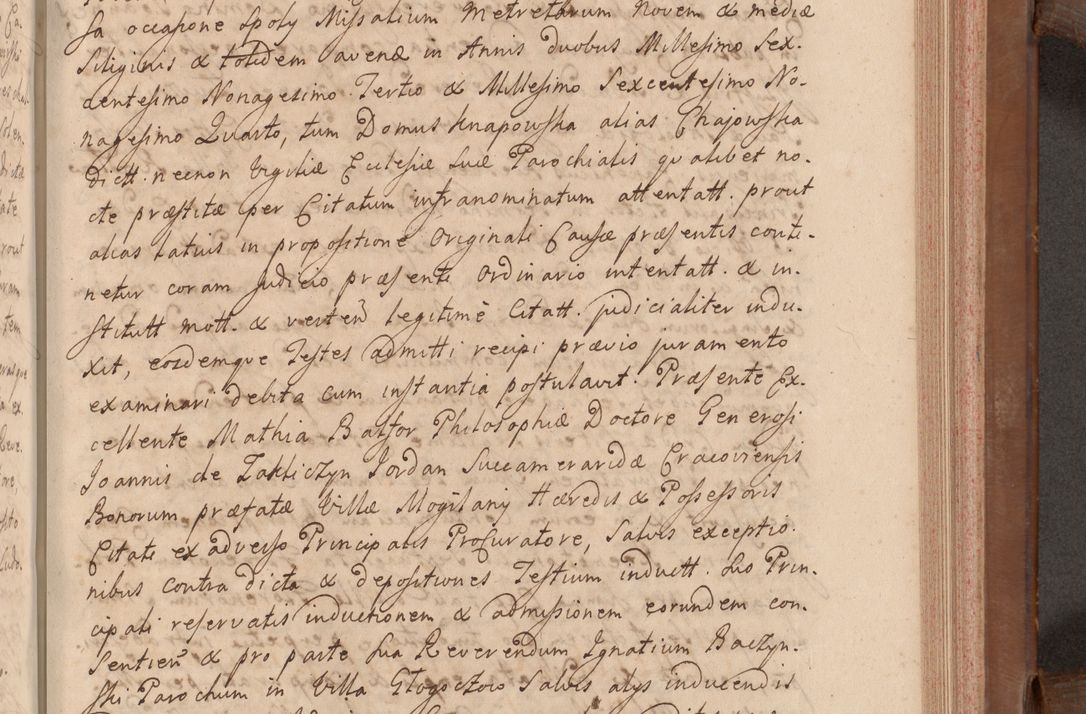 sa occasione spoly Missalium Metretarum Novem & mediæ
Siliginis & totidem avenæ in Annis duobus Millesimo Sex-
centesimo Nonagesimo Tertio & Millesimo Sexcentesimo No-
nagesimo Quarto, tum Domus Knapowska alias Chajowska
dictt. necnon Vigiliæ Ecclesiæ suæ Parochialis qualibet no-
cte præstitæ per Citatum infranominatum attentatt. prout
alias latius in propositione Originali Causæ præsentis conti-
netur coram Judicio præsenti Ordinario intentatt. & in-
stitutt mott. & verten̄ legitimè Citatt. judicialiter indu-
xit, eosdemque Testes admitti recipi prævio juramento
examinari debita cum instantia postulavit. Præsente Ex-
cellente Mathia Balsor Philosophiæ Doctore Generosi
Joannis de Zakliczyn Jordan Succameraridæ Cracoviensis
Bonorum præfatæ Villæ Mogilany Hæredis & Possessoris
Citati ex adverso Principalis Procuratore, Salvis exceptio-
nibus contra dicta & depositiones Testium inductt. suo Prin-
cipali reservatis inductionem & admissionem eorundem con-
sentien̄ & pro parte sua Reverendum Ignatium Baczyn-
ski Parochum in Villa Głogoczow Salvis alys inducendis